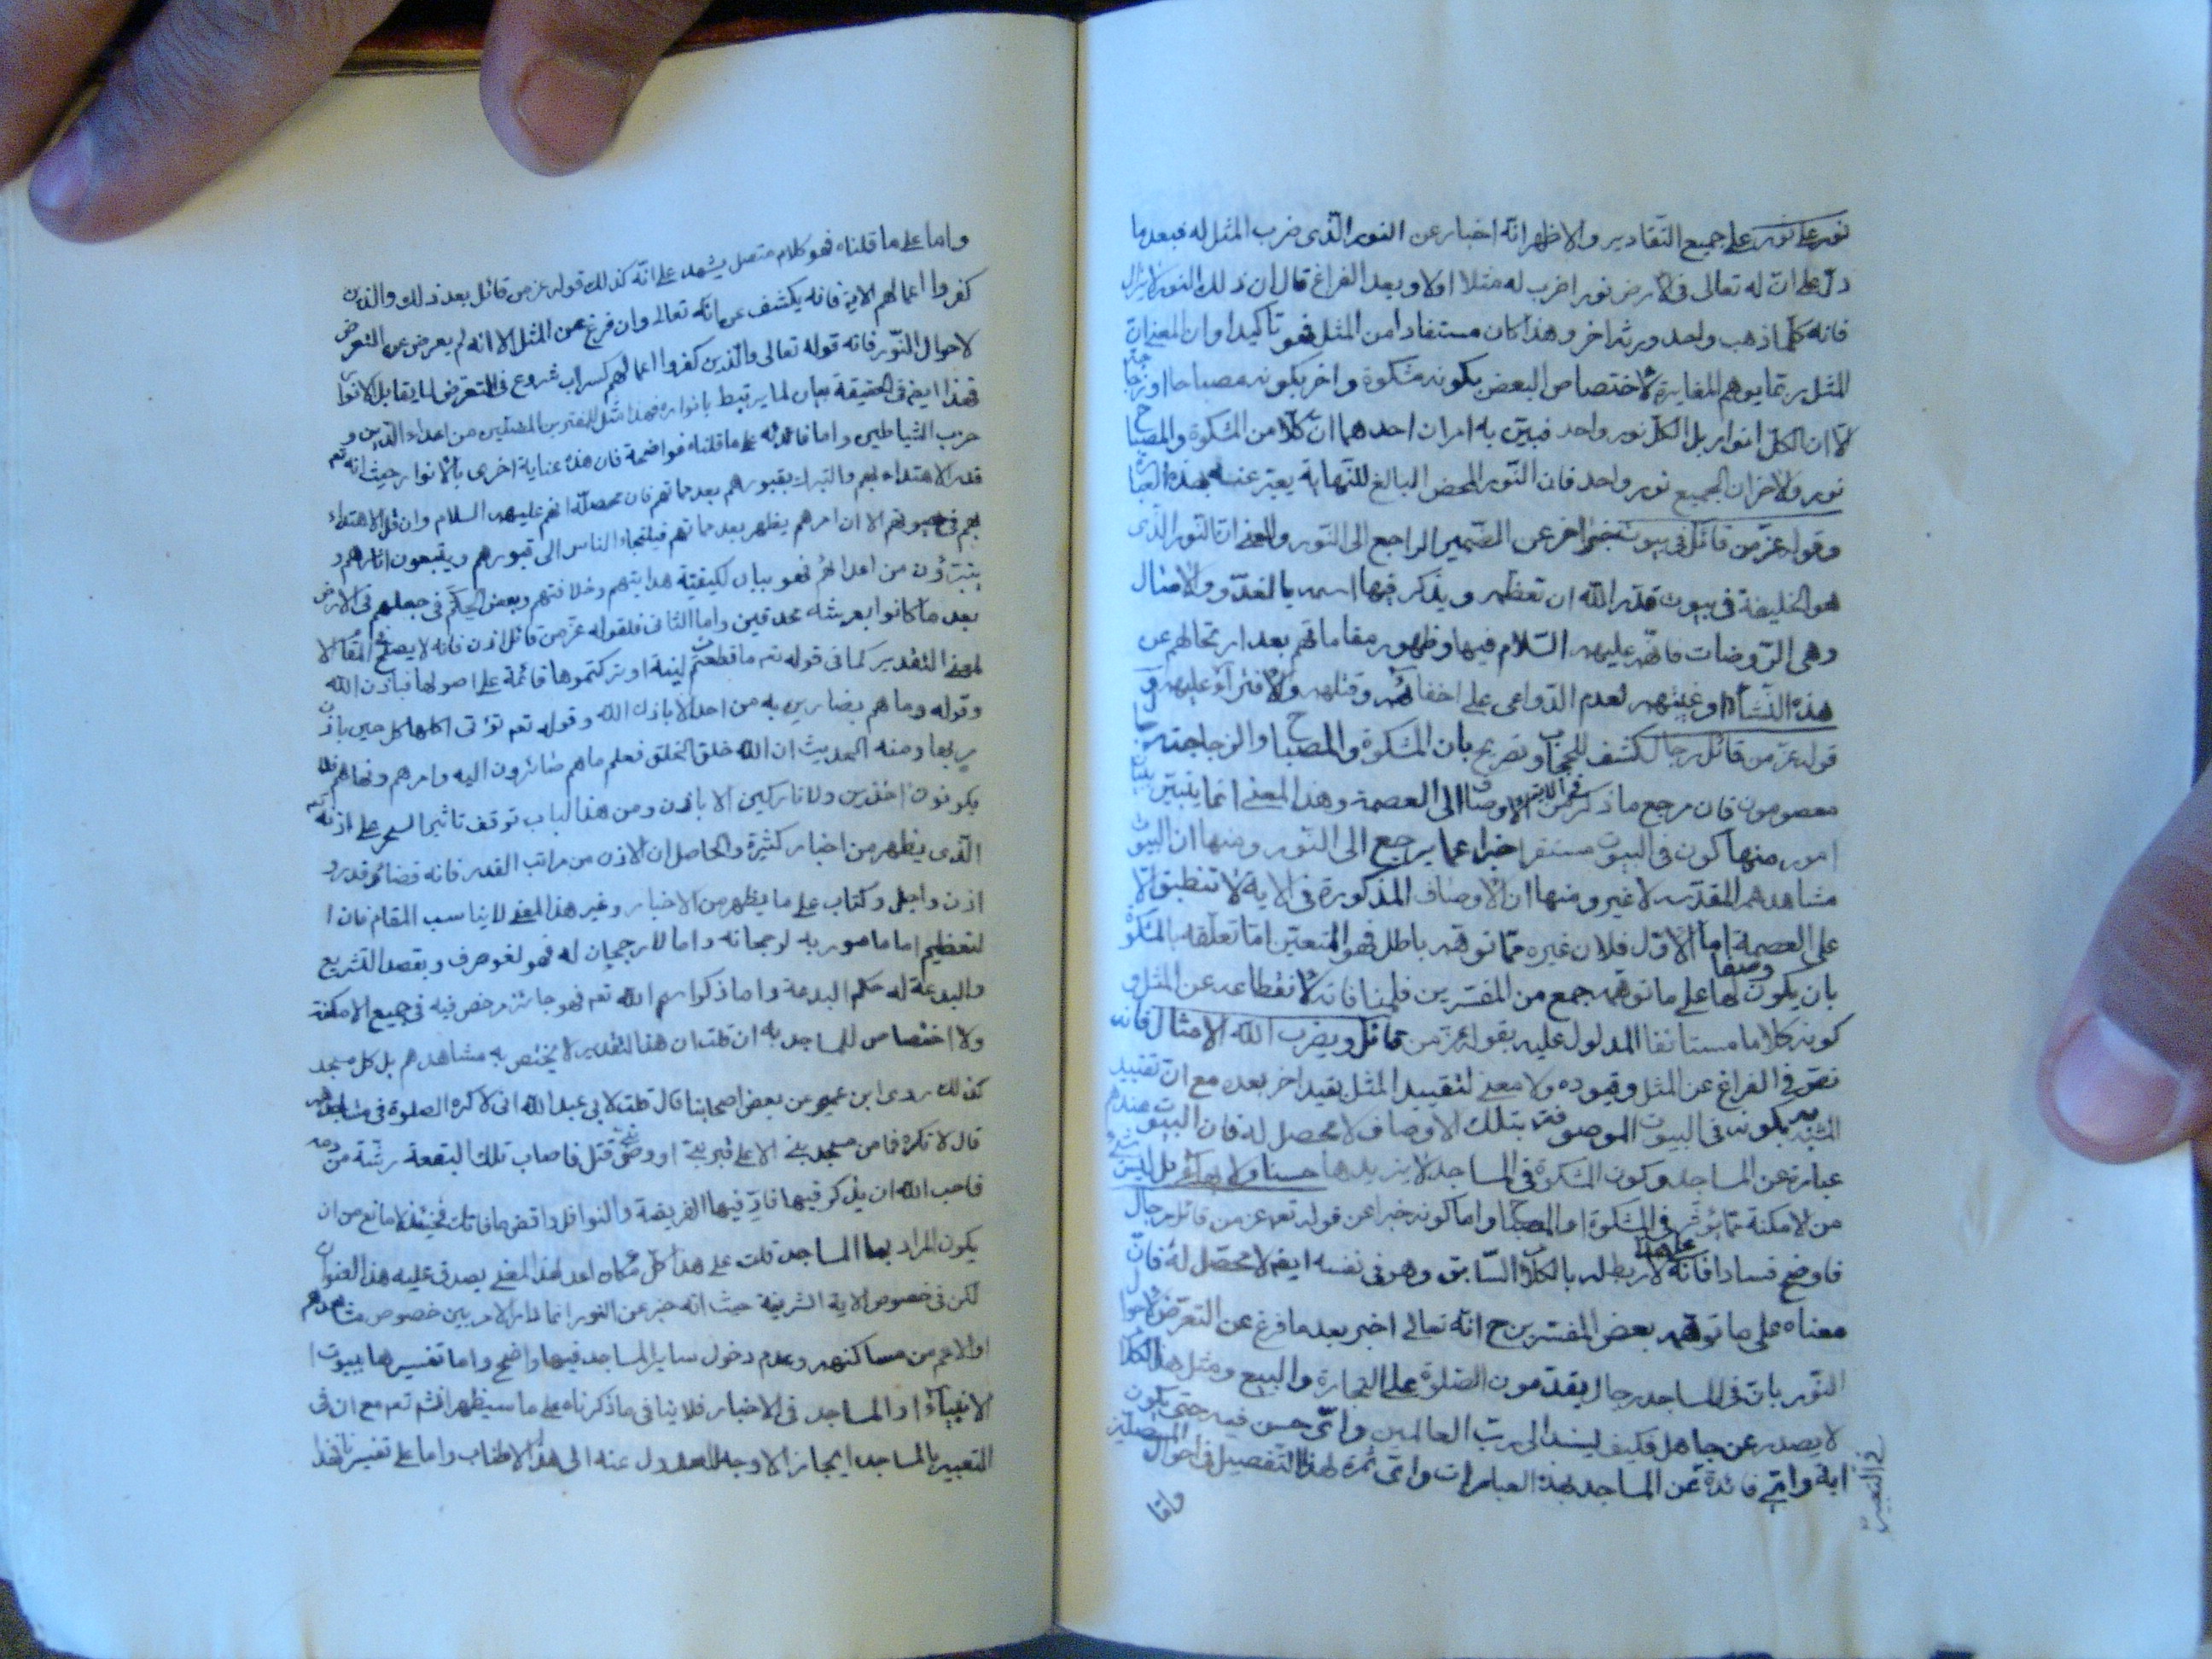 نور على نور على جميع التقادير والاظهر انه اخبار عن النور الذى ضرب المثل له فبعد ما
دل على ان له تعالى فى الارض نورا ضرب له مثلا اولا وبعد الفراغ قال ان ذلك النور لايزال
فانه كلما ذهب واحد ورثه اخر وهذا كان مستفادا من المثل فهو تاكيد او ان المعنى ان
المثل ربما يوهم المغايرة لاختصاص البعض بكونه مشكوة واخر بكونه مصباحا او زجاجة
لا ان الكل انوار بل الكل نور واحد فبين به امران احدهما ان كلا من المشكوة والمصباح
نور والاخر ان الجميع نور واحد فان النور المحض البالغ للنهاية يعبر عنه بهذه العبارة
وقوله عز من قائل فى بيوت خبر اخر عن الضمير الراجع الى النور والمعنى ان النور الذى
هو الخليفة فى بيوت قدر الله ان تعظم ويذكر فيها اسمه بالغدو والاصال
وهى الروضات فانهم عليهم السلام فيها وظهور مقاماتهم بعد ارتحالهم عن
هذه النشأة او غيبتهم لعدم الدواعى على اخفائهم وقتلهم والافتراء عليهم و
قوله عز من قائل رجال كشف للحجاب وتصريح بان المشكوة والمصباح والزجاجة رجال
معصومون فان مرجع ما ذكر فى الاية من الاوصاف الى العصمة وهذا المعنى انما يتبين ببيان
امور منها كون فى البيوت مستقرا خبرا عما يرجع الى النور ومنها ان البيوت
مشاهدهم المقدسه لا غير ومنها ان الاوصاف المذكورة فى الاية لا تنطبق الا
على العصمة اما الاول فلان غيره مما توهم باطل فهو المتعين اما تعلقه بالمشكوة
بان يكون وصفا لها على ما توهمه جمع من المفسرين فلمنافاته لانقطاعه عن المثل و
كونه كلاما مستانفا المدلول عليه بقوله عز من قائل ويضرب الله الامثال فانه
نص فى الفراغ عن المثل وقيوده ولا معنى لتقييد المثل بقيد اخر بعده مع ان تقييد
المشبه به بكونه فى البيوت الموصوفة بتلك الاوصاف لا محصل له فان البيوت عندهم
عبارة عن المساجد وكون المشكوة فى المساجد لا يزيدها حسنا ولا بهاء بل ليس شئ
من الامكنة مما يؤثر فى المشكوة او المصباح واما كونه خبرا عن قوله تعم عز من قائل رجال
فاوضح فسادا فانه على هذا لا ربط له بالكلام السابق وهو فى نفسه ايضا لا محصل له فان
معناه على ما توهمه بعض المفسرين ح انه تعالى اخبر بعد ما فرغ عن التعرض لاحوال
النور بان فى المساجد رجال يقدمون الصلوة على التجارة والبيع ومثل هذا الكلام
لا يصدر عن جاهل فكيف يسند الى رب العالمين واى حسن فيه حتى يكون
اية واى فائدة فى التعبير عن المساجد بهذه العبارات واى ثمرة لهذا التفصيل فى احوال المصلين
واما
واما على ما قلناه فهو كلام متصل يشهد على انه كذلك قوله عز من قائل بعد ذلك والذين
كفروا اعمالهم الاية فانه يكشف عن انه تعالى وان فرغ من المثل الا انه لم يعرض عن التعرض
لاحوال النور فانه قوله تعالى والذين كفروا اعمالهم كسراب شروع فى التعرض لما يقابل الانوار
فهذا ايضا فى الحقيقة بيان لما يرتبط بانواره فهذا مثل للمفترين المضلين من اعداء الدين و
حزب الشياطين واما فائدته على ما قلناه فواضحة فان هذه عناية اخرى بالانوار حيث انه تعم
قدر الاهتداء بهم والتبرك بقبورهم بعد مماتهم فان محصله انهم عليهم السلام وان قل الاهتداء
بهم فى حيوتهم الا ان امرهم يظهر بعد مماتهم فيلتجاء الناس الى قبورهم ويتبعون اثارهم و
يتبرؤن من اعدائهم فهو بيان لكيفية هدايتهم وخلافتهم وبعض الحكم فى جعلهم فى الارض
بعد ما كانوا بعرشه محدقين واما الثانى فلقوله عز من قائل اذن فانه لا يصلح فى المقام الا
لمعنى التقدير كما فى قوله تعم ما قطعتم من لينة او تركتموها قائمة على اصولها فباذن الله
وقوله وما هم بضارين به من احد الا باذن الله وقوله تعم تؤتى اكلها كل حين باذن
ربها ومنه الحديث ان الله خلق الخلق فعلم ما هم صائرون اليه وامرهم ونهاهم فلا
يكونون اخذين ولا تاركين الا باذن ومن هذا الباب توقف تاثير السحر على اذنه تعم
الذى يظهر من اخبار كثيرة والحاصل ان الاذن من مراتب القدر فانه قضاء وقدر و
اذن واجل وكتاب على ما يظهر من الاخبار وغير هذا المعنى لا يناسب المقام فان ا
لتعظيم اما مامور به لرجحانه واما لا رجحان له فهو لغو صرف وبقصد التشريع
والبدعة له حكم البدعة واما ذكر اسم الله تعم فهو جائز مرخص فيه فى جميع الامكنة
ولا اختصاص للمساجد به ان قلت ان هذا التقدير لا يختص به مشاهدهم بل كل مسجد
كذلك روى ابن عمير عن بعض اصحابنا قال قلت لابى عبد الله انى لاكره الصلوة فى مساجدهم
قال لا تكره فما من مسجد بنى الا على قبر نبى او وصى نبى قتل فاصاب تلك البقعة رشة من دمه
فاحب الله ان يذكر فيها فاد فيها الفريضة والنوافل واقض ما فاتك فحينئذ لا مانع من ان
يكون المراد بها المساجد قلت على هذا كل مكان اعد لهذا المعنى يصدق عليه هذا العنوان
لكن فى خصوص الاية الشريفة حيث انه خبر عن النور انما دار الامر بين خصوص مشاهدهم
او الاعم من مساكنهم وعدم دخول ساير المساجد فيها واضح واما تفسيرها ببيوت ا
لانبياء او المساجد فى الاخبار فلا ينافى ما ذكرناه على ما سيظهر انشم تعم مع ان فى
التعبير بالمساجد ايجازا لا وجه للعدول عنه الى هذا الاطناب واما على تفسيرنا فهذا